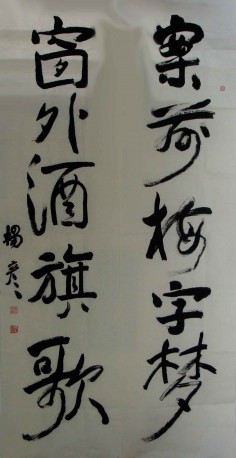 案前梅字梦
窗外酒旗歌
楊